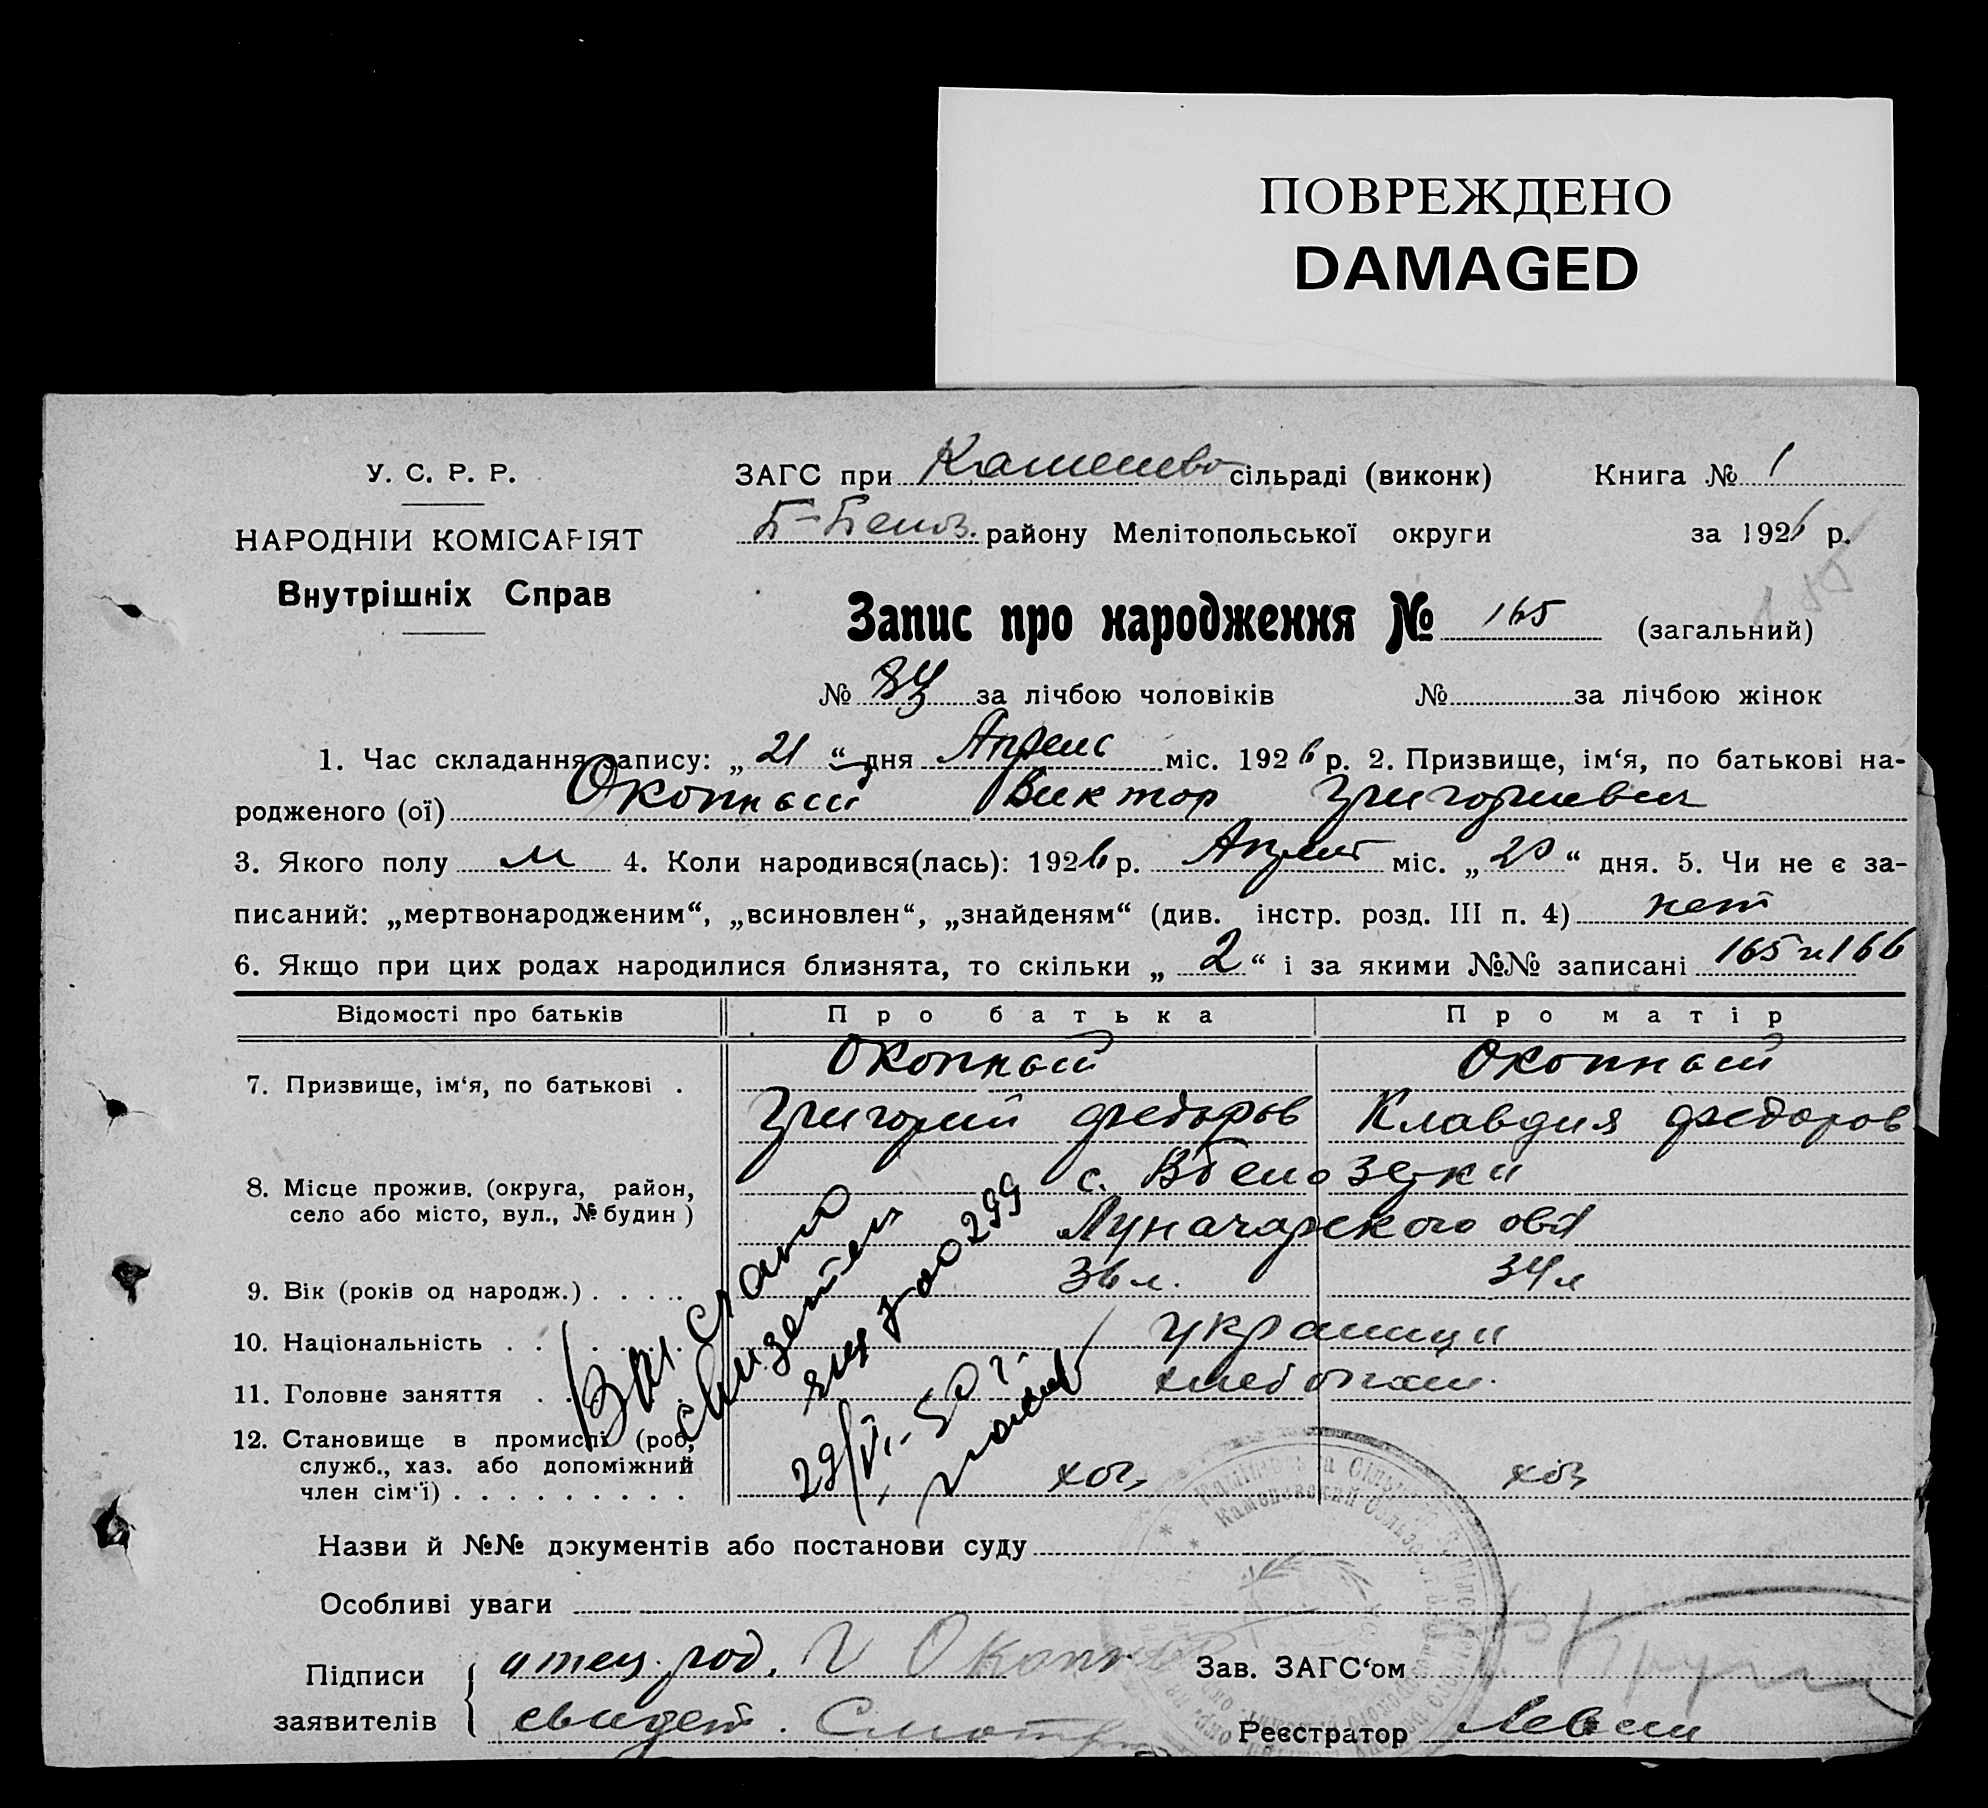 ПОВРЕЖДЕНО
DAMAGED
У. С. Р. Р.
НАРОДНІЙ КОМІСАРІЯТ
Внутрішніх Справ
ЗАГС при сільраді (виконк) Книга № 1
Б-Белоз. району Мелітопольської округи за 1926 р.
Запис про народження № 165 (загальний)
№ за лічбою чоловіків № за лічбою жінок
1. Час складання запису: „ 21 “ дня Апрель міс. 1926 р. 2. Призвище, ім‘я, по батькові на-
родженого (ої) Окопный Виктор Григориевич
3. Якого полу м 4. Коли народився(лась): 1926 р. Апрель міс. „ 20 “ дня. 5. Чи не є за-
писаний: „мертвонародженим“, „всиновлен“, „знайденям“ (див. інстр. розд. III п. 4) нет
6. Якщо при цих родах народилися близнята, то скільки „ 2 “ і за якими №№ записані 165 и 166
Відомості про батьків Про батька Про матір
Окопный Окопный
7. Призвище, ім‘я, по батькові .
Григорий Федоров Клавдия Федоров
8. Місце прожив. (округа, район, село або місто, вул., № будин) с. Вбелозерки
Луначарского
9. Вік (років од народж.) 36 л. 34 л
10. Національність украинци
11. Головне заняття хлебопаш.
12. Становище в промислі (роб, служб., хаз. або допоміжний член сім‘ї) хоз хоз
29/VI-50 г.
Назви й №№ документів або постанови суду
Особливі уваги
Підписи заявителів
отец. род. Г Окопн
свидет. Смотр
Зав. ЗАГС‘ом
Реєстратор